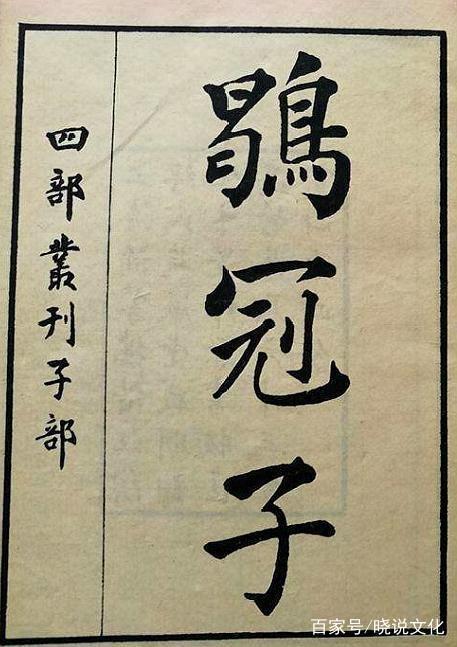 鶡冠子
四部叢刊子部
百家号/晓说文化